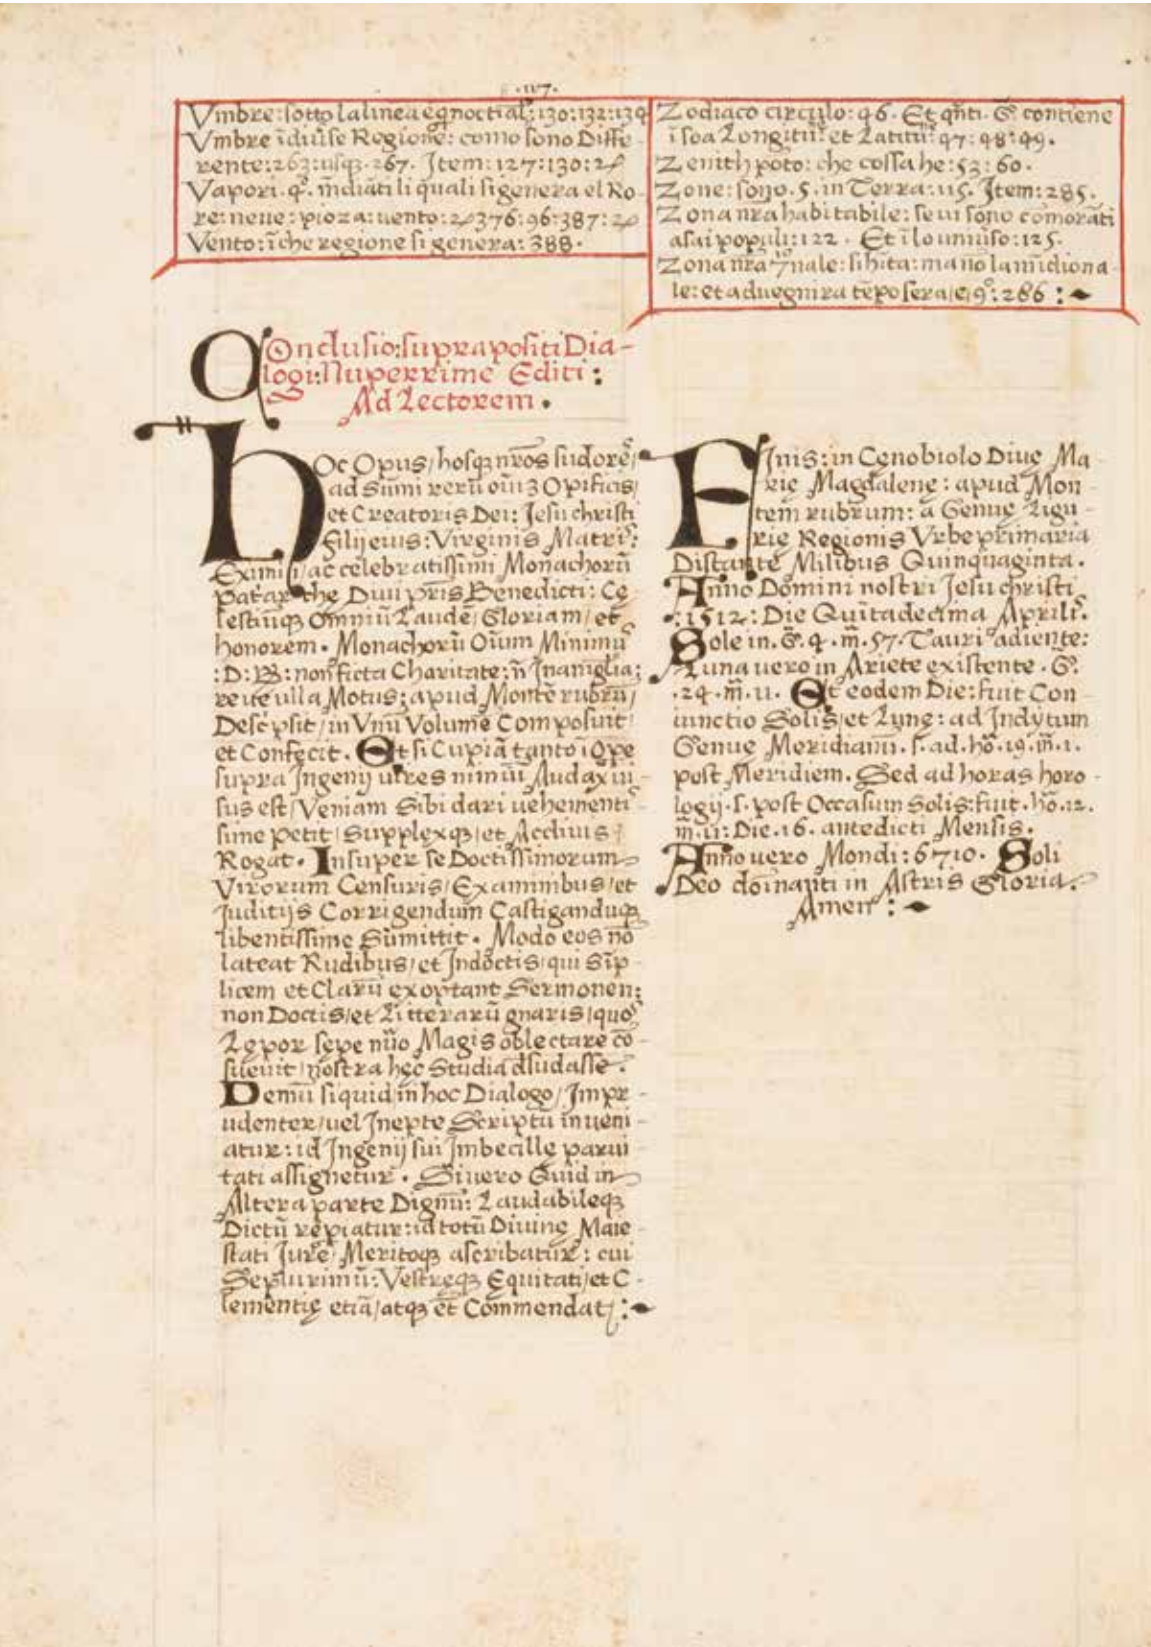 Vmbre: sotto la linea eqnoctial: 130: 132: 139
Vmbre ĩ diuse Regione: como sono Diffe
rente: 263: usq. 267. Item: 127: 130:
Vapori. mediãti li quali si genera el Ro-
re: neue: pioza: uento: 376: 96: 387:
Vento: ĩ che regione si genera: 388.
Zodiaco circulo: 96. Et qñti. G̃. contiene
ĩ soa Longitu: et Latitu: 97: 98: 99.
Zenith poto: che cossa he: 53: 60.
Zone: sono .5. in Terra: 115. Item: 285.
Zona nr̃a habitabile: se ui sono comorãti
asai populi: 122. Et ĩ lo uniuso: 125.
Zona nr̃a: si hita: ma nõ la midiona-
le: et aduegnira tẽpo sera: 286 :
COnclusio: supra positi Dia-
logi: Nuperrime Editi:
Ad Lectorem.
HOc Opus/ hosq nr̃os sudore/
ad Sũmi rerũ oiuʒ Opificis/
et Creatoris Dei: Jesu christi
filij eius: Virginis Matri:
Eximij/ ac celebratissimi Monachorũ
Patarche Diui pr̃is Benedicti: Ce
lestiuq Omniũ Laudẽ/ Gloriam/ et
honorem. Monachorũ Oium Minimu
:D: B: non ficta Charitate: ñ Inani gl̃ia:
re ue ulla Motus: apud Montẽ rubrũ/
Descpsit/ in Vnũ Volumẽ Composuit/
et Confecit. Et si Cupiã tanto ĩ Ope
supra Ingenij uires nimiũ Audax ui-
sus est/ Veniam Sibi dari uehementi
sime petit/ Supplexq/ et Accliuis/
Rogat. Insuper se Doctissimorum
Virorum Censuris/ Examinibus/ et
Juditijs Corrigendum Castigandūq
libentissime Sũmittit. Modo eos nõ
lateat Rudibus/ et Indoctis/ qui Sĩp-
licem et Clarũ exoptant Sermonen:
non Doctis/ et Litterarũ gnaris/ quos
Lępor sępe nĩo Magis oblectare cõ-
sueuit/ nostra hęc Studia dsudasse.
Demũ si quid/ in hoc Dialogo/ Impr-
udenter/ uel Inepte Scriptũ inueni-
atur: id Ingenij sui Imbecille parui-
tati assignetur. Si uero Quid in
Altera parte Dignũ: Laudabileq
Dictũ repiatur: id totũ Diuinę Maie-
stati Jure/ Meritoq ascribatur: cui
Se plurimũ: Vestręq Equitati/ et C-
lementię etiã/ atq et Commendat :
FInis: in Cęnobiolo Diuę Ma-
rię Magdalenę: apud Mon-
tem rubrum: a Genuę Ligu-
rię Regionis Vrbe primaria
Distante Milibus Quinquaginta.
Anno Domini nostri Jesu christi
:1512: Die Quĩtadecima Aprili.
Sole in .G̃. 4. m̃. 57. Tauri adiente:
Luna uero in Ariete existente. G̃.
.24. m̃. 11. Et eodem Die: fuit Con-
iunctio Solis/ et Lunę: ad Inclytum
Genuę Meridianũ. s. ad. ho. 19. m̃. 1.
post Meridiem. Sed ad horas horo-
logij. s. post Occasum Solis: fuit. ho. 12.
m̃. 11: Die. 16. antedicti Mensis.
Anno uero Mondi: 6710. Soli
Deo dominanti in Astris Gloria.
Amen :